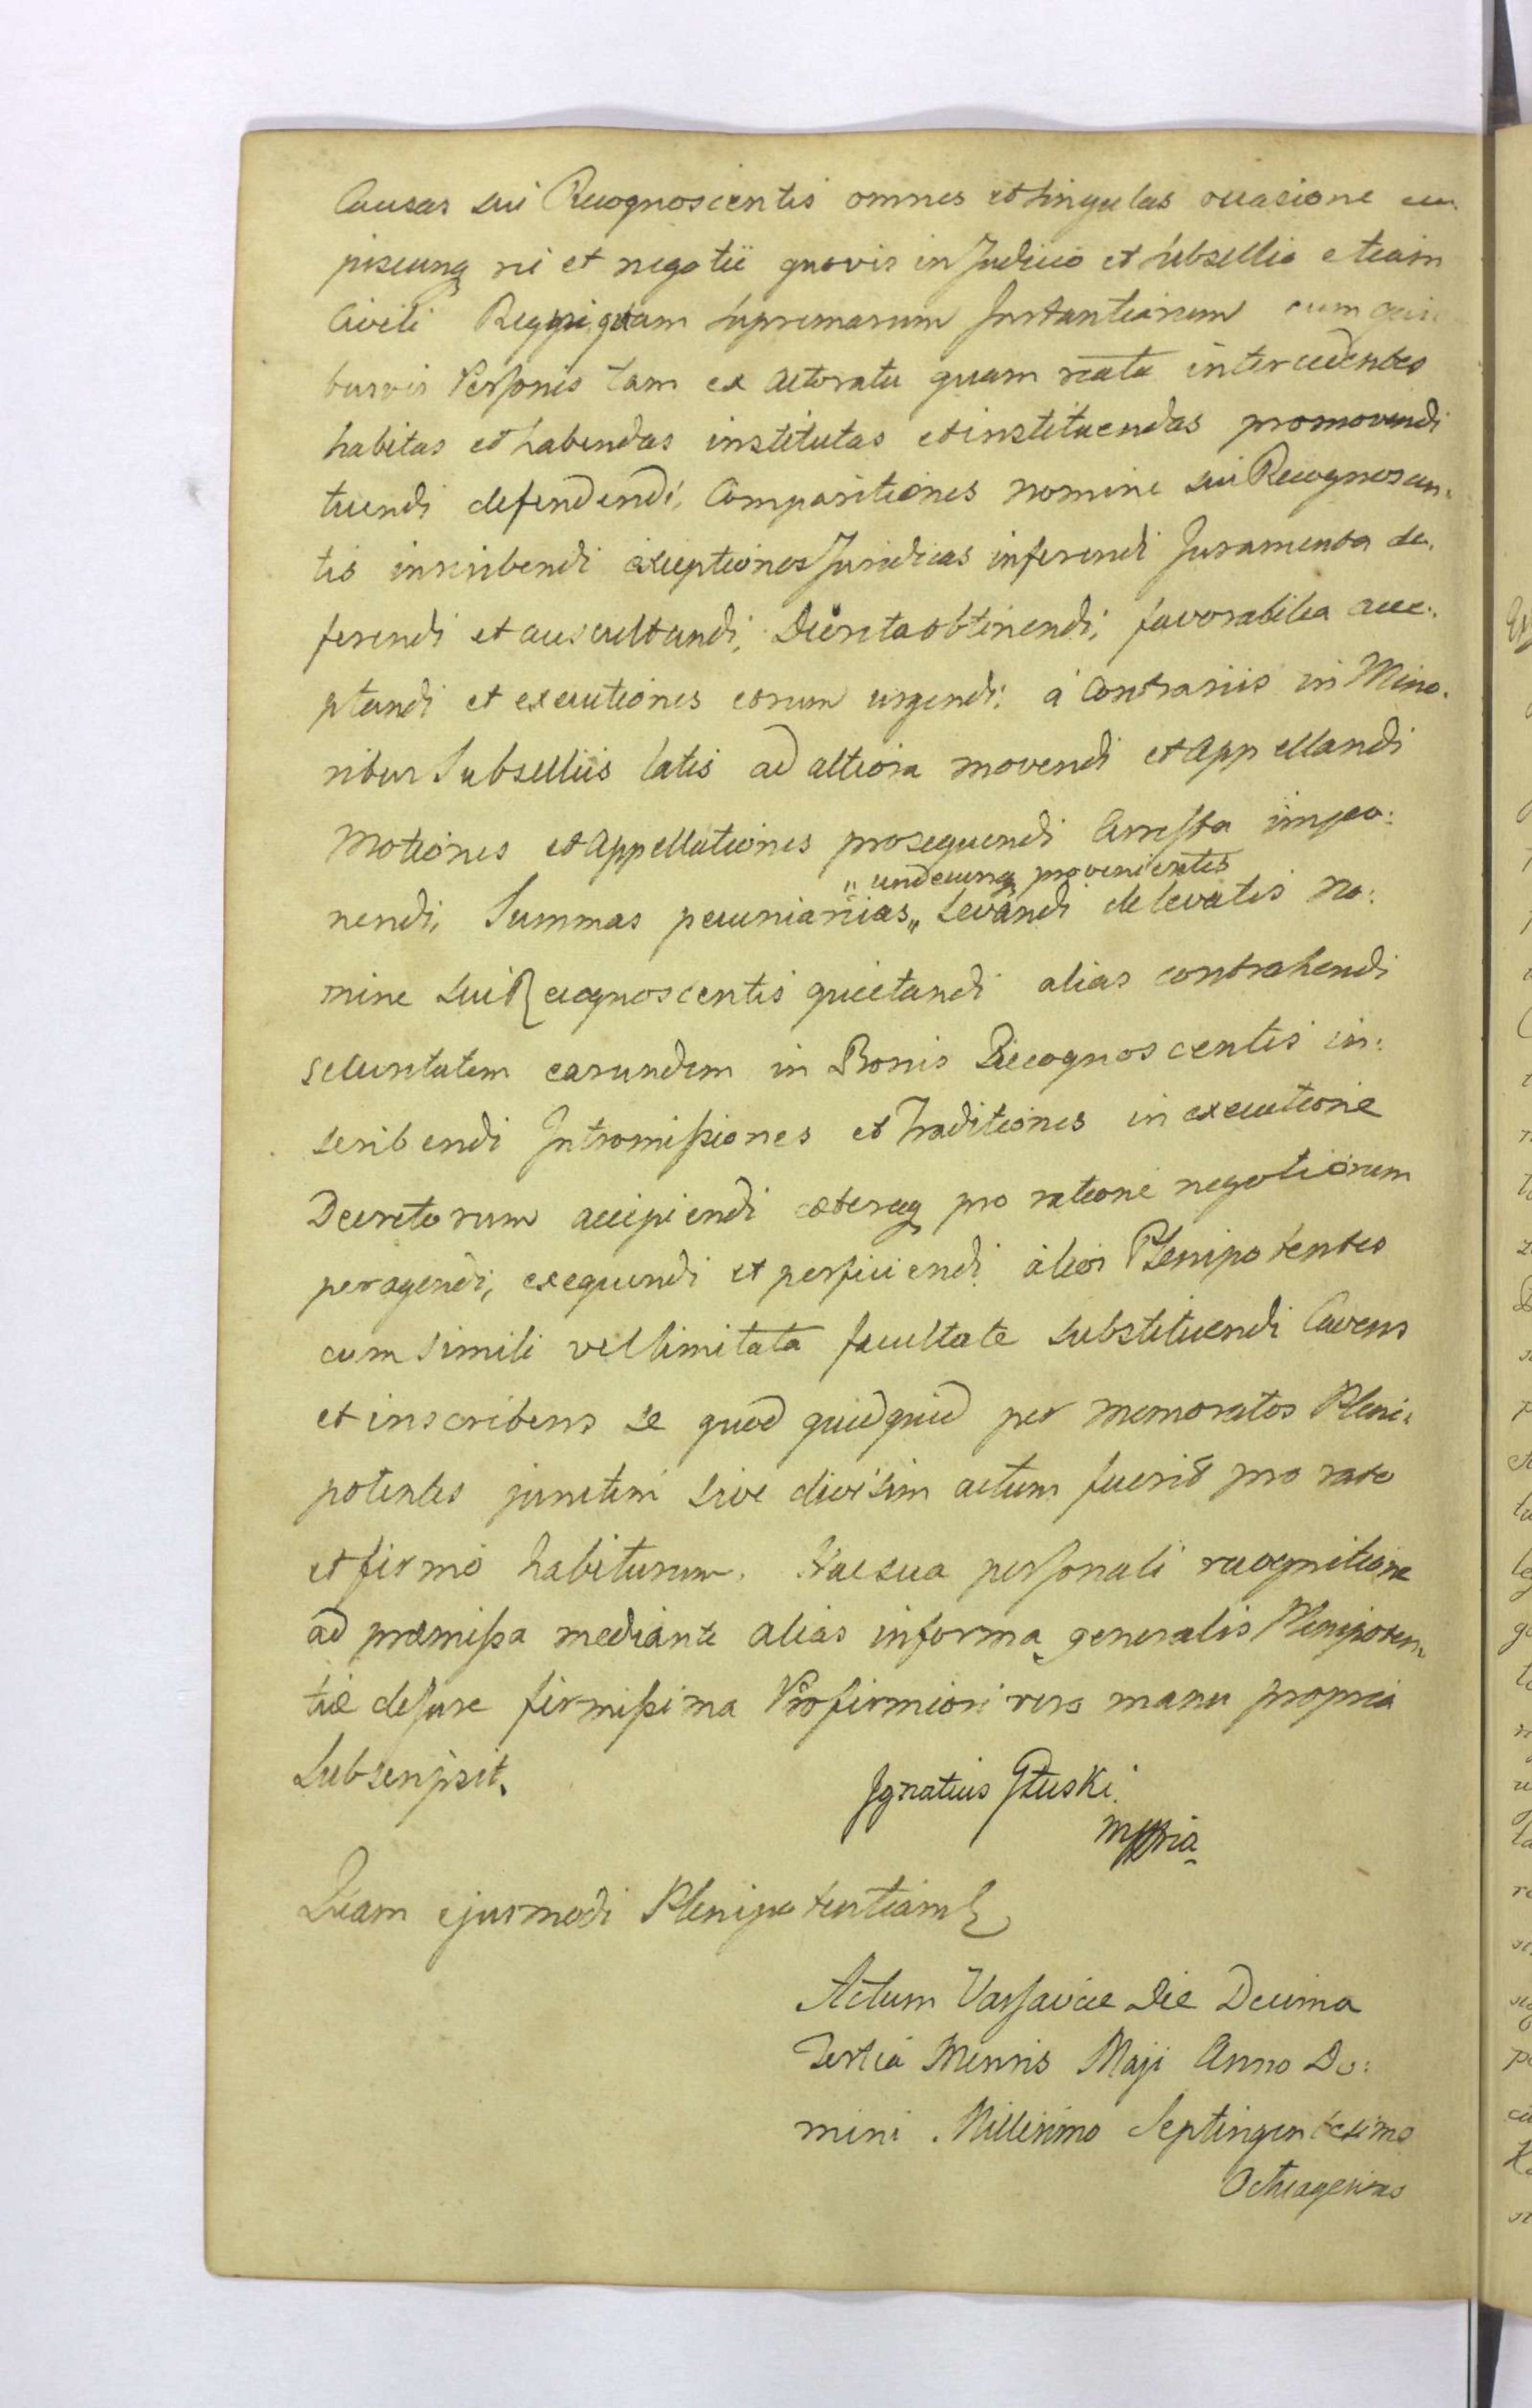 Causas sui Recognoscentis omnes et singulas occasione cu-
piscunq rei et negotii quovis in Judicio et subsellio etiam
Civili Regni quam supremarum Instantiarum cum qui
busvis Personis tam ex Actoratu quam reatu intercedentes
habitas et habendas institutas et instituendas promovendi
tuendi defendendi, Comparitiones nomine sui Recognoscen-
tis inscribendi exceptiones Juridicas inferendi Juramenta de-
ferendi et auscultandi, Decreta obtinendi, favorabilia acce-
ptandi et executiones eorum urgendi; à Contrariis in Mino-
ribus Subselliis latis ad altiora movendi et appellandi
Motiones et Appellationes prosequendi Arresta impo:
" undecunq provenientes
nendi, Summas pecuniarias " Levandi de levatis No:
mine sui Recognoscentis quietandi alias contrahendi
securitatem earundem in Bonis Recognoscentis in:
scribendi Intromissiones et Traditiones in executione
Decretorum accipiendi cæteraq pro ratione negotiorum
peragendi, exequendi et perficiendi alios Plenipotentes
cum simili vel limitata facultate substituendi Cavens
et inscribens se quod quidquid per memoratos Pleni:
potentes junctim sive divisim actum fuerit pro rato
et firmo habiturum. Hac sua personali recognitione
ad præmissa mediante alias in forma generalis Plenipoten
tiæ de Jure firmissima Pro firmiori vero manu propria
Subscripsit.
Ignatius Głuski
mppria
Quam ejusmodi Plenipotentiam
Actum Varsaviæ Die Decima
Tertia Mensis Maji Anno Do:
mini Millesimo Septingentesimo
Octuagesimo